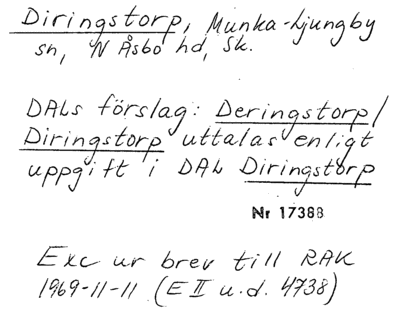 Diringstorp, Munka-Ljungby
sn, N Åsbo hd, Sk.
DALs förslag: Deringstorp/
Diringstorp uttalas enligt
uppgift i DAL Diringstorp
Nr 17388
Exc ur brev till RAK
1969-11-11 (E II u.d. 4738)